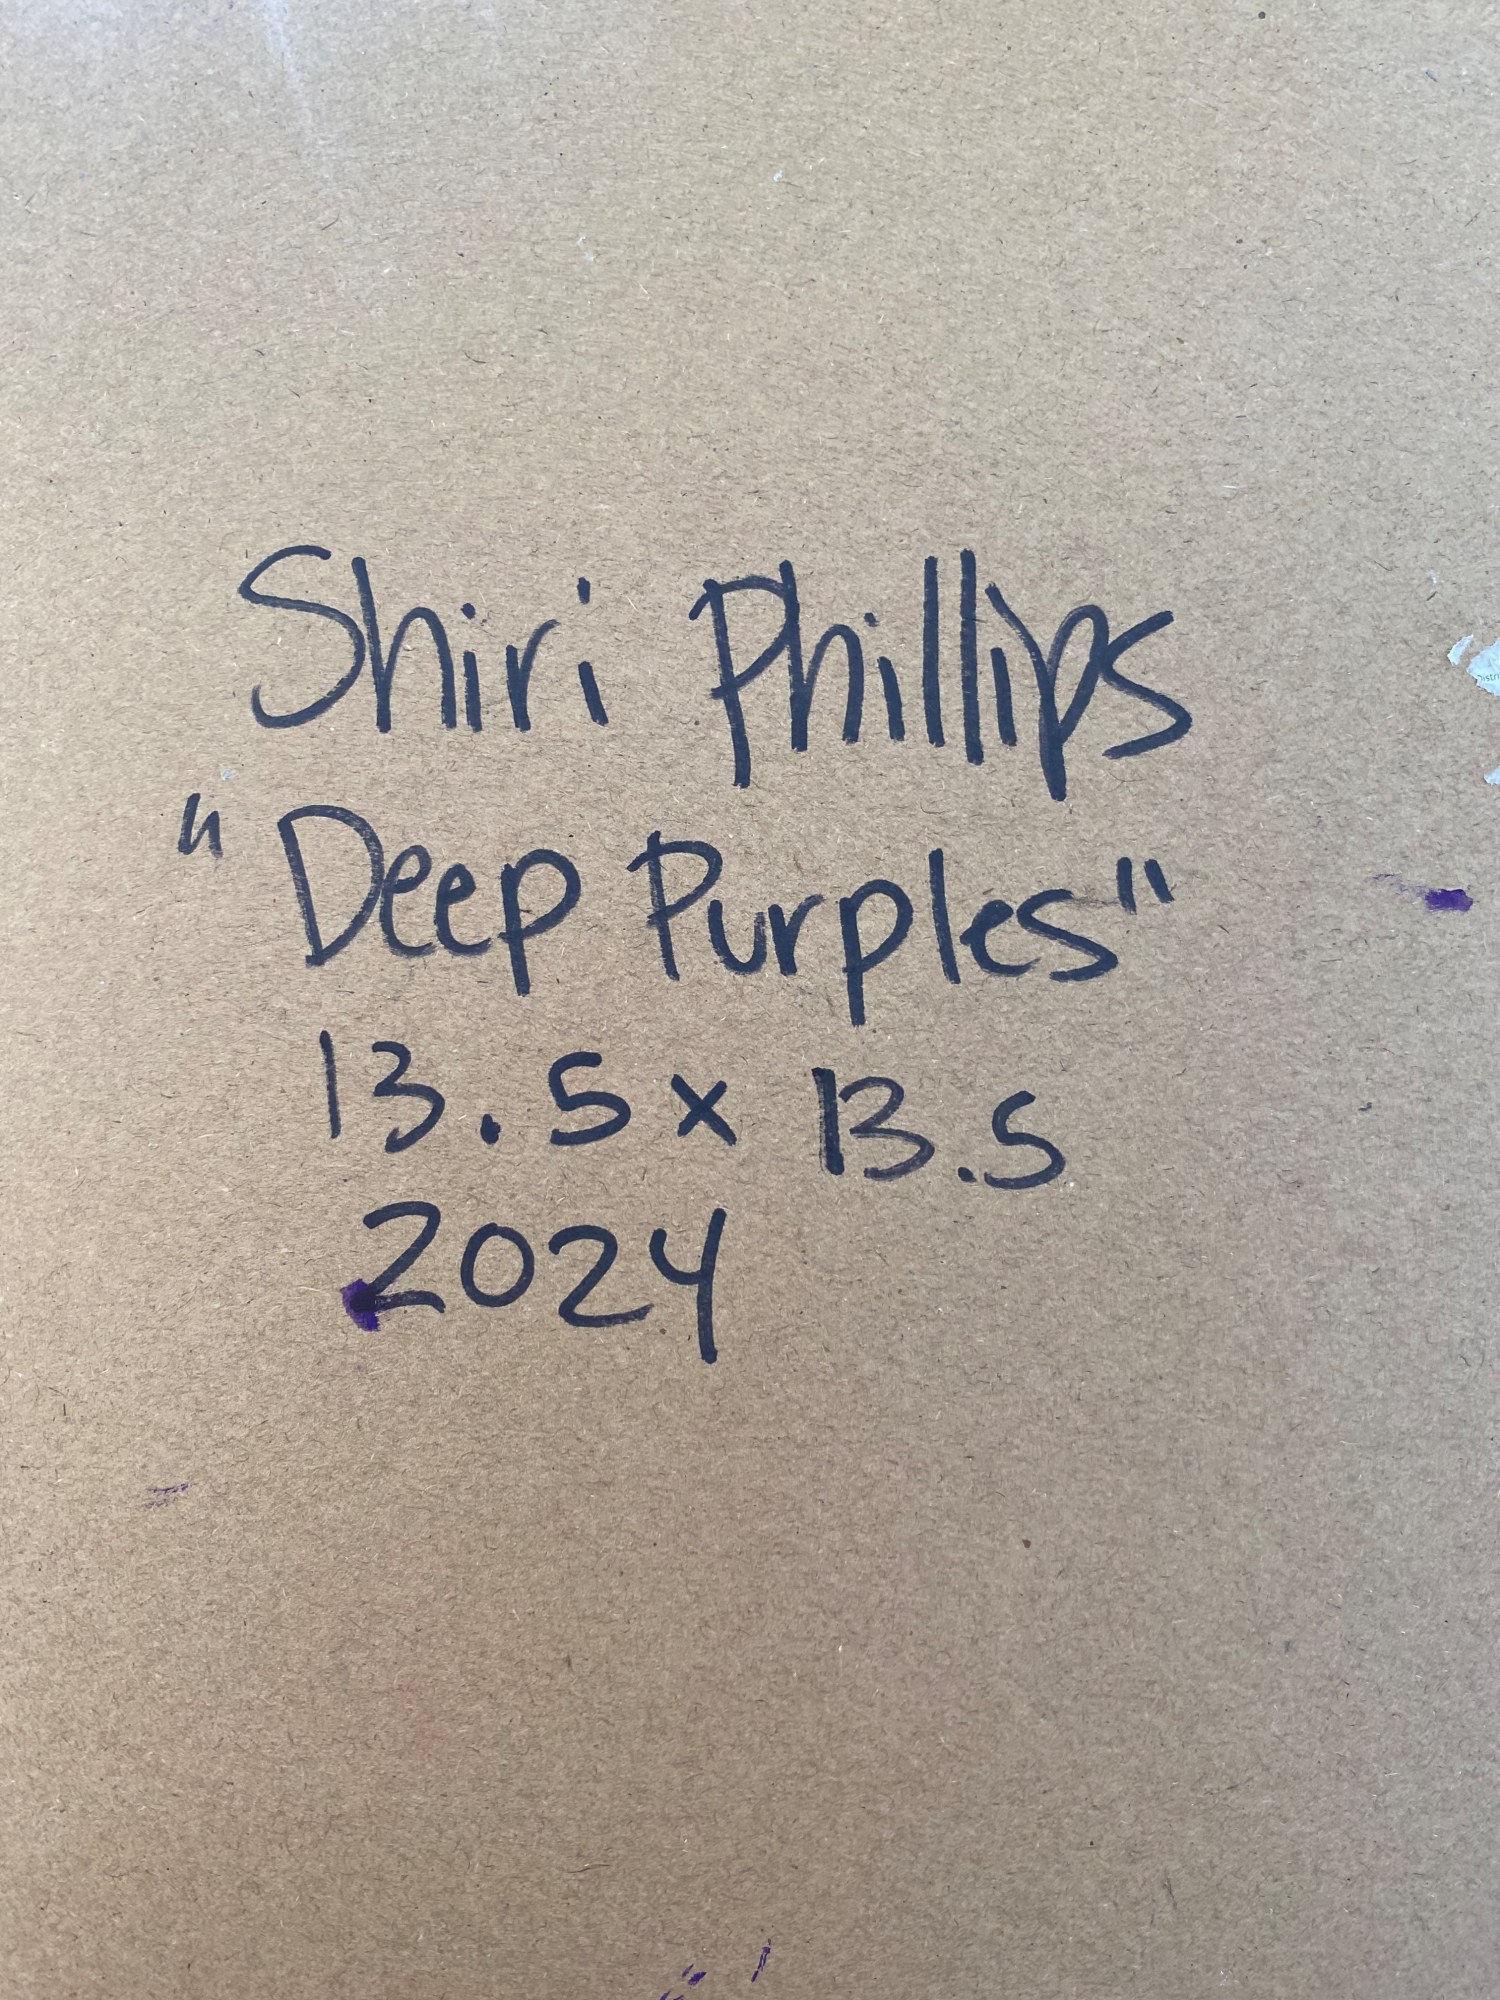 Shiri Phillips
"Deep Purples"
13.5 x 13.5
2024